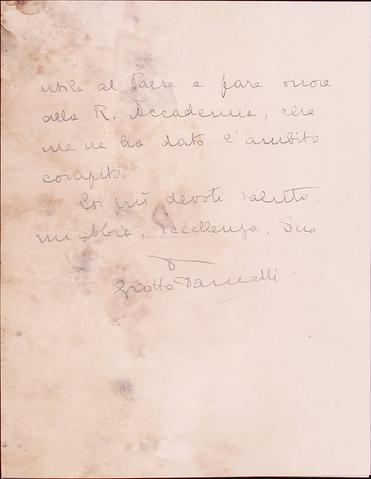 utile al Paese e fare onore
alla R. Accademia, che
me ne ha dato l'ambito
compito.
Coi più devoti saluti.
mi abbia, eccellenza, Suo
Giotto Dainelli